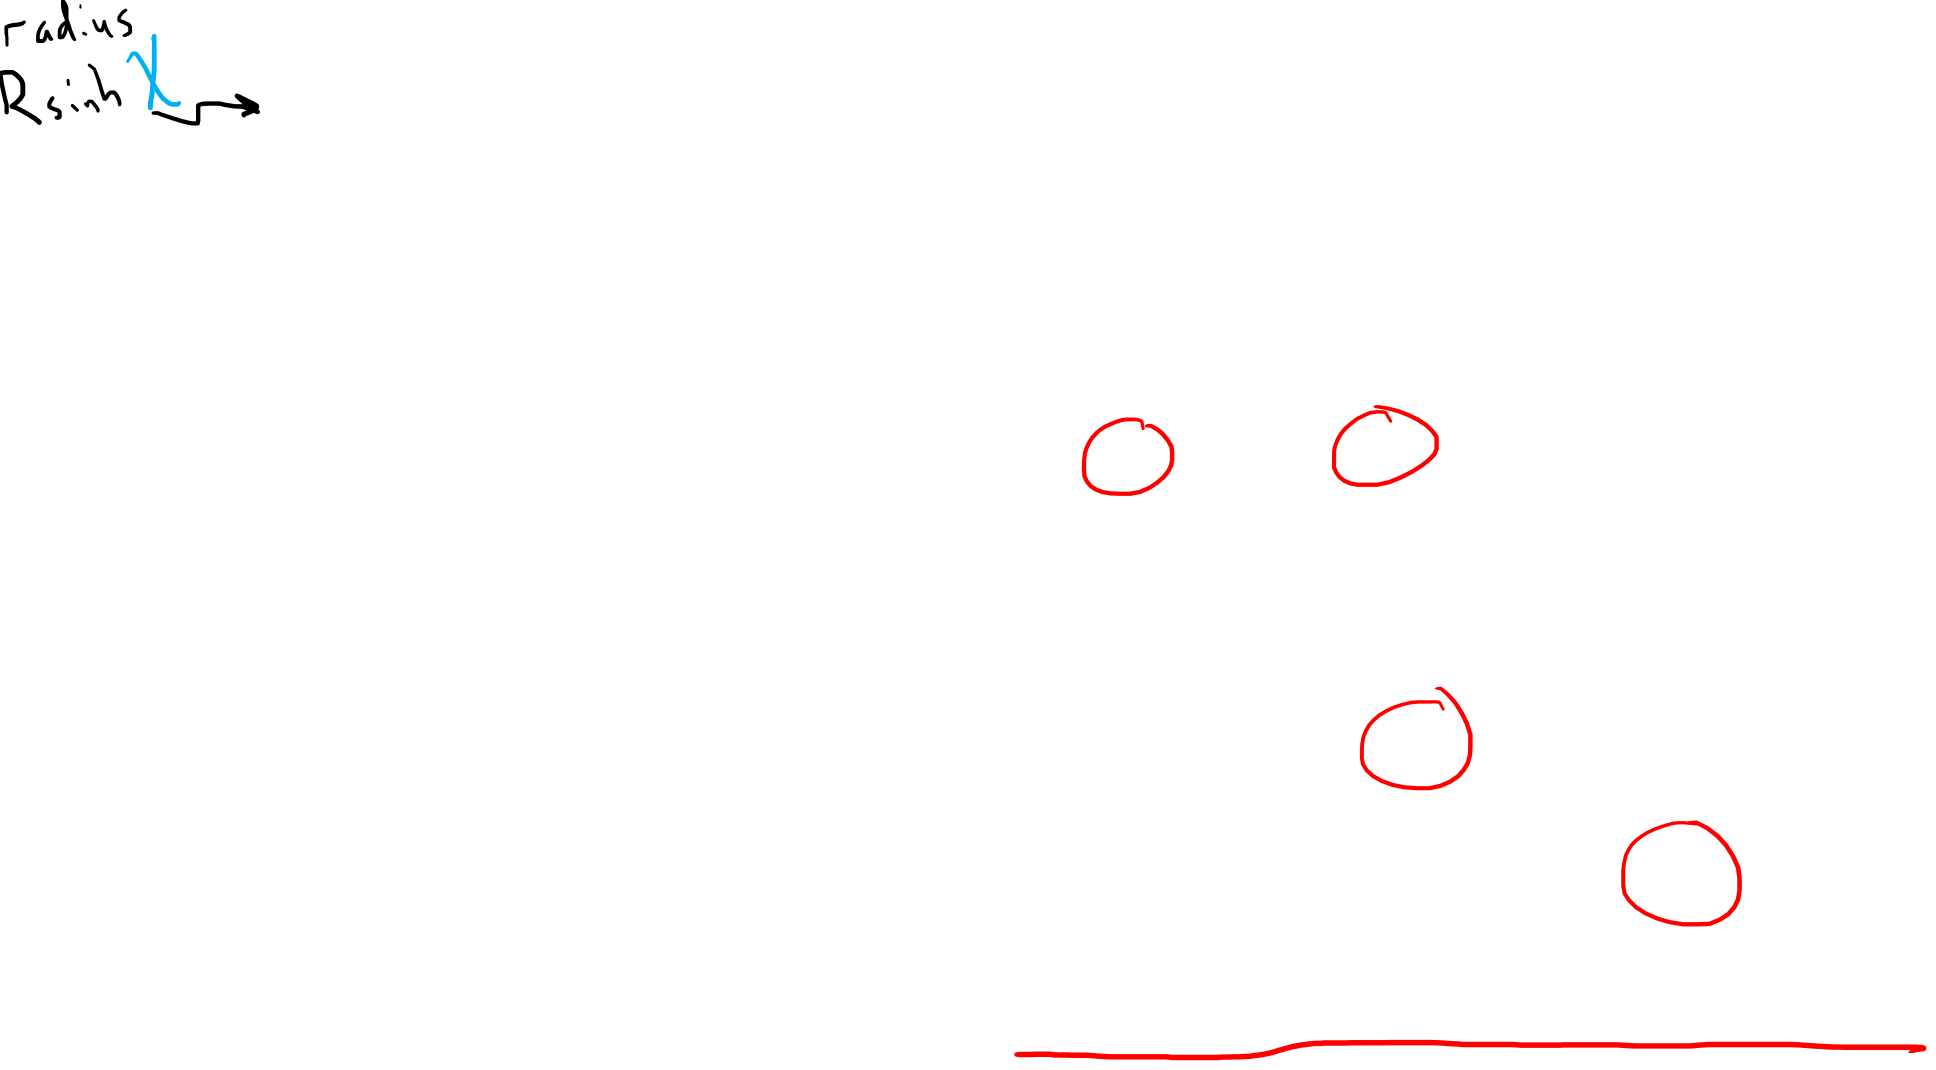 radius
R sinh χ